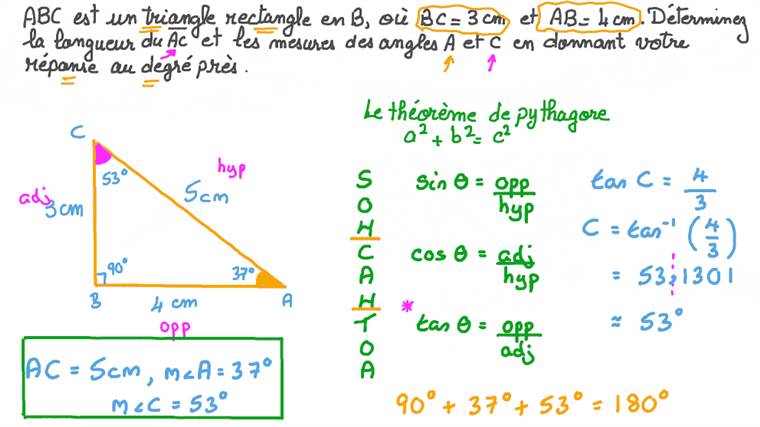 ABC est un triangle rectangle en B, où BC = 3 cm et AB = 4 cm. Déterminez
la longueur du AC et les mesures des angles A et C en donnant votre
réponse au degré près.
Le théorème de pythagore
a² + b² = c²
C
53°
hyp
5cm
adj
3cm
90°
37°
B
4 cm
A
opp
S
O
H
C
A
H
T
O
A
sin θ = opp/hyp
cos θ = adj/hyp
* tan θ = opp/adj
tan C = 4/3
C = tan⁻¹ (4/3)
= 53,1301
≈ 53°
AC = 5cm, m∠A = 37°
m∠C = 53°
90° + 37° + 53° = 180°